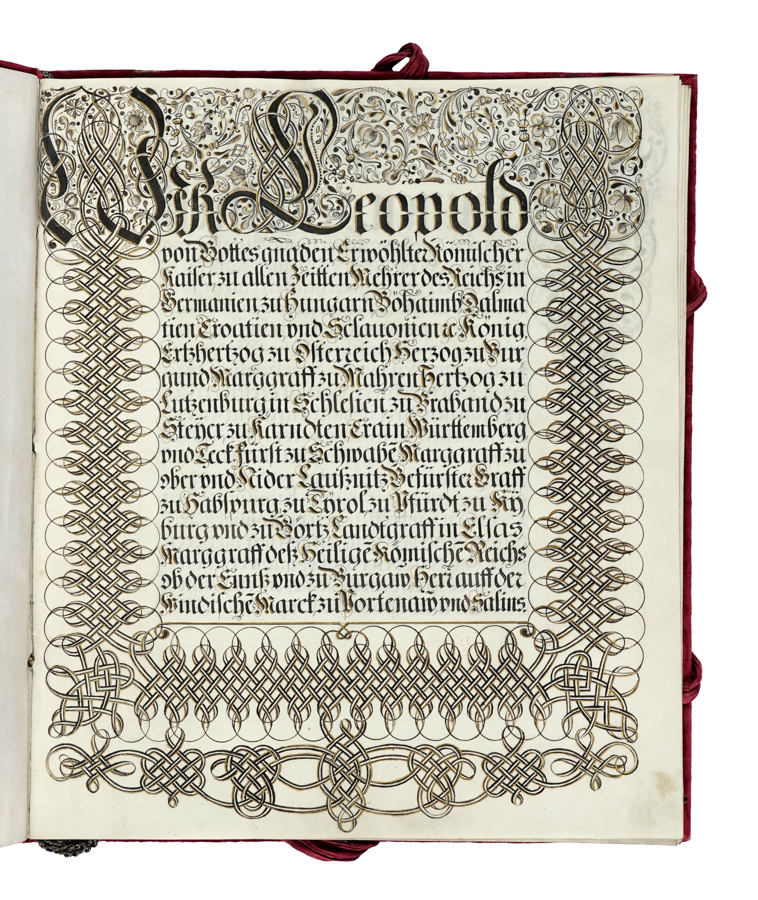 Wir Leopold
von Gottes gnaden Erwöhlter Römischer
Kaiser zu allen Zeitten Mehrer des Reichs in
Germanien zu Hungarn Böhaimb Dalma
tien Croatien vnd Sclauonien ꝛc König
Ertzhertzog zu Osterreich Herzog zu Bur
gund Marggraff zu Mähren Hertzog zu
Lutzenburg in Schlesien zu Braband zu
Steyer zu Karndten Crain Württemberg
vnd Teck Fürst zu Schwabē Marggraff zu
ober vnd Nider Laußnitz Gefürster Graff
zu Habspurg zu Tyrol zu Pfürdt zu Ky
burg vnd zu Görtz Landtgraff in Elsas
Marggraff deß Heiligē Römischē Reichs
ob der Ennß vnd zu Burgaw Herr auff der
Windischē Marck zu Portenaw vnd Salins.